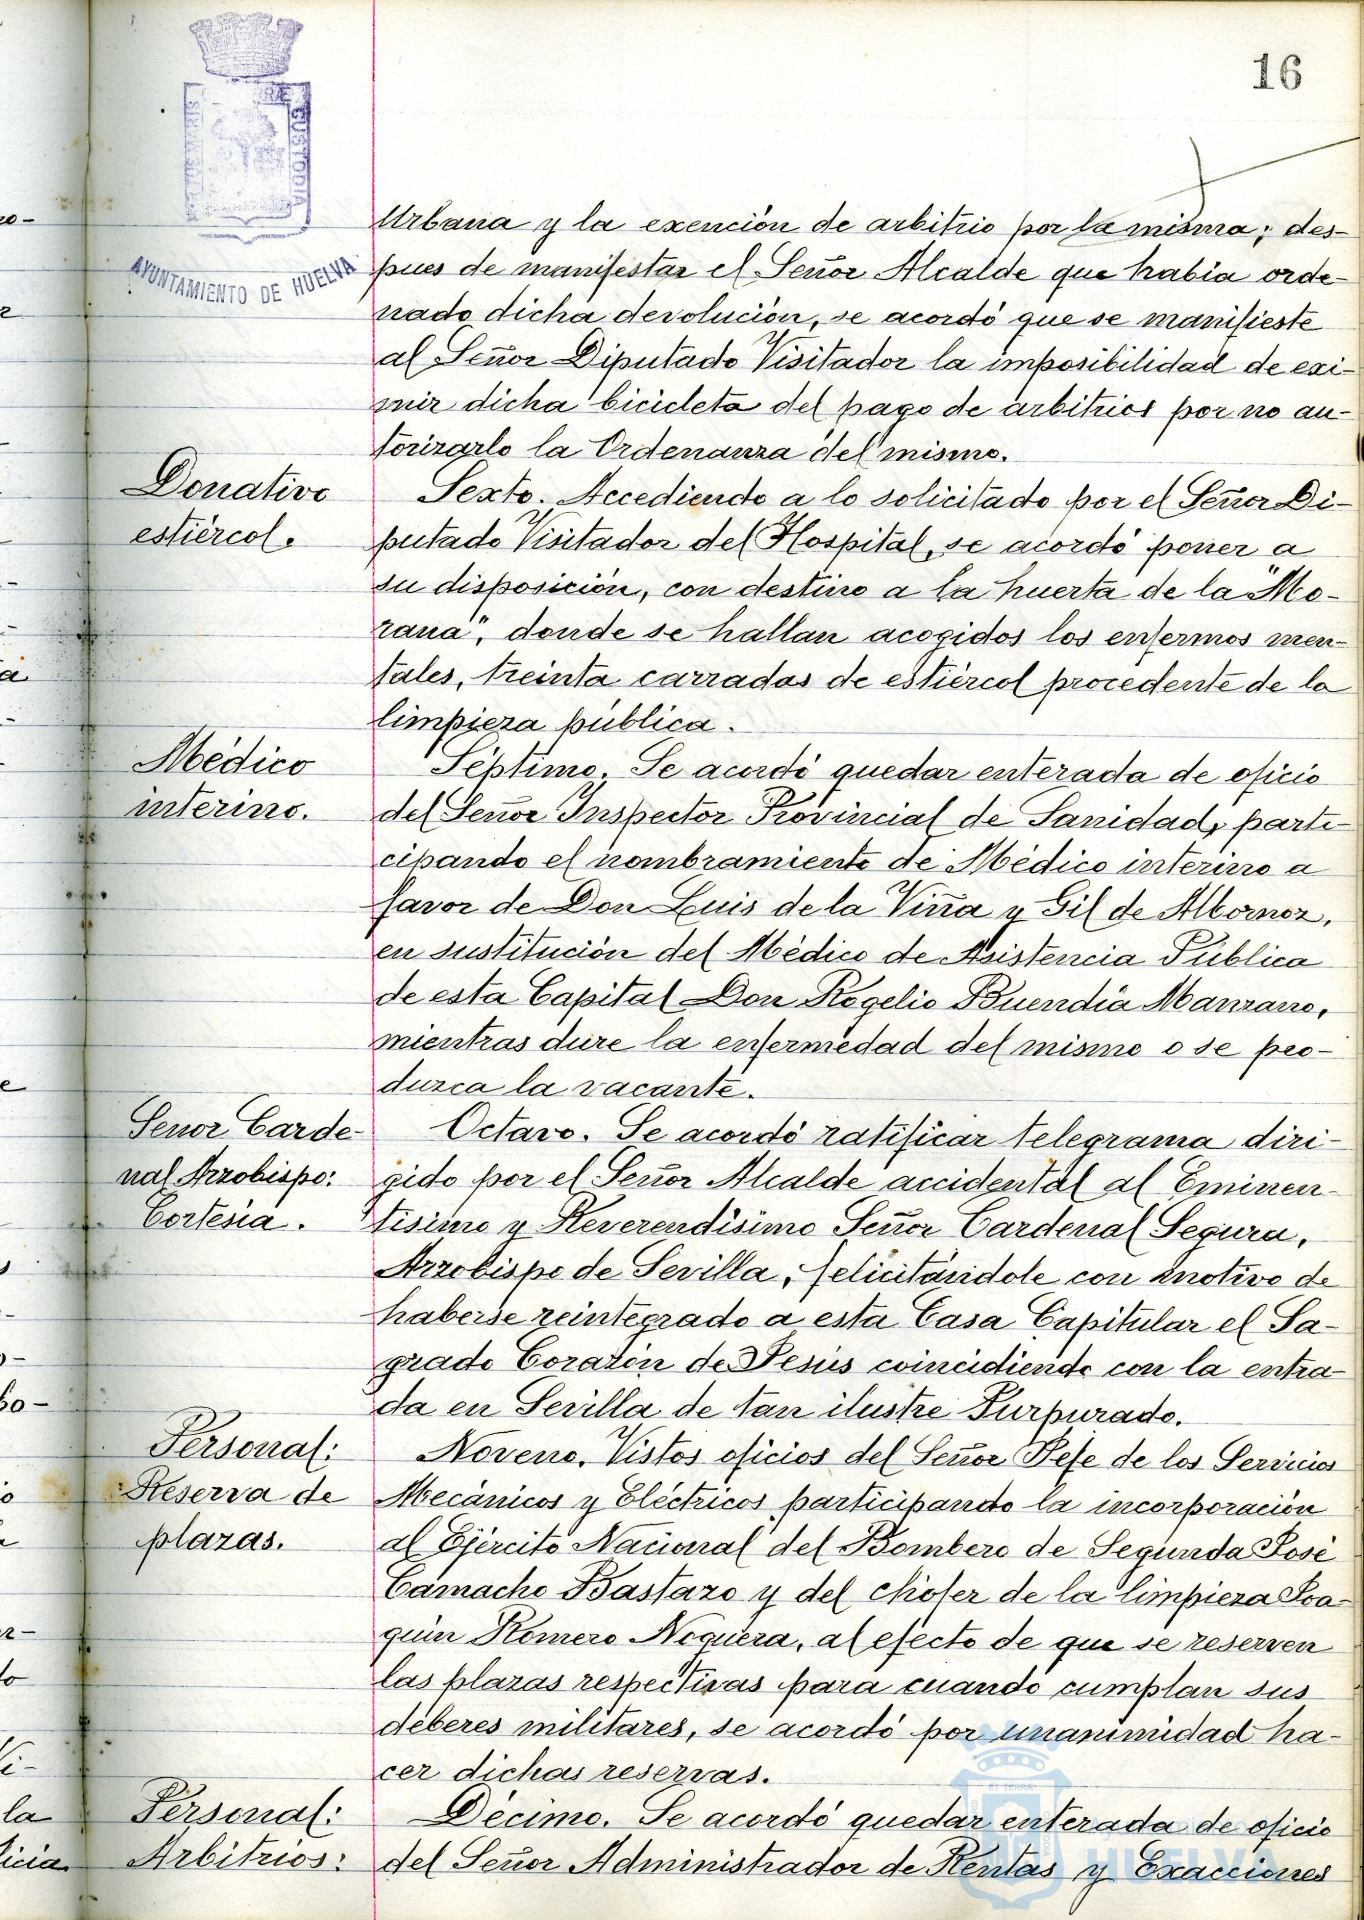 16
AYUNTAMIENTO DE HUELVA
Urbana y la exención de arbitrio por la misma; des-
pues de manifestar el Señor Alcalde que habia orde-
nado dicha devolución, se acordó que se manifieste
al Señor Diputado Visitador la imposibilidad de exi-
mir dicha bicicleta del pago de arbitrios por no au-
torizarlo la Ordenanza del mismo.
Donativo
estiércol.
Sexto. Accediendo a lo solicitado por el Señor Di-
putado Visitador del Hospital, se acordó poner a
su disposición, con destino a la huerta de la "Mo-
rana", donde se hallan acogidos los enfermos men-
tales, treinta carradas de estiércol procedente de la
limpieza pública.
Médico
interino.
Séptimo. Se acordó quedar enterada de oficio
del Señor Inspector Provincial de Sanidad, parti-
cipando el nombramiento de Médico interino a
favor de Don Luis de la Viña y Gil de Albornoz,
en sustitución del Médico de Asistencia Pública
de esta Capital Don Rogelio Buendía Manzano,
mientras dure la enfermedad del mismo o se pro-
duzca la vacante.
Señor Carde-
nal Arzobispo:
Cortesía.
Octavo. Se acordó ratificar telegrama diri-
gido por el Señor Alcalde accidental al Eminen-
tísimo y Reverendísimo Señor Cardenal Segura,
Arzobispo de Sevilla, felicitándole con motivo de
haberse reintegrado a esta Casa Capitular el Sa-
grado Corazón de Jesús coincidiendo con la entra-
da en Sevilla de tan ilustre Purpurado.
Personal:
Reserva de
plazas.
Noveno. Vistos oficios del Señor Jefe de los Servicios
Mecánicos y Eléctricos participando la incorporación
al Ejército Nacional del Bombero de Segunda José
Camacho Bastazo y del chófer de la limpieza Joa-
quín Romero Noguera, al efecto de que se reserven
las plazas respectivas para cuando cumplan sus
deberes militares, se acordó por unanimidad ha-
cer dichas reservas.
Personal:
Arbitrios:
Décimo. Se acordó quedar enterada de oficio
del Señor Administrador de Rentas y Exacciones
HUELVA